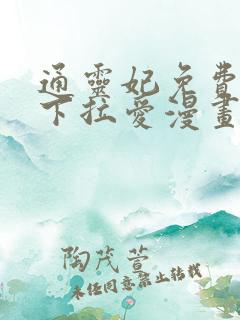 通靈妃免費
下拉愛漫畫
陶茂萱
未经同意禁止转载